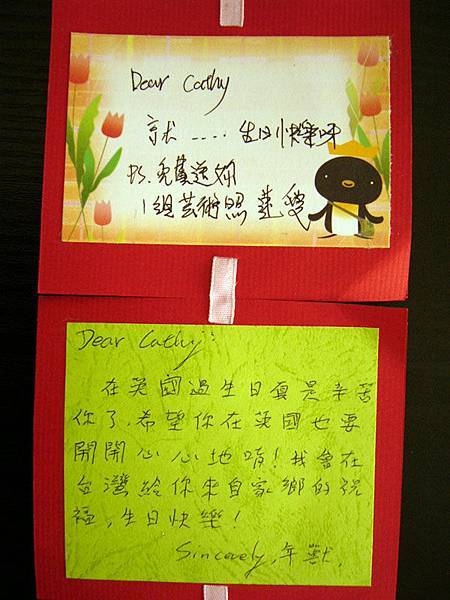 Dear Cathy
就 .... 生日快樂呀
P.S. 免費送妳
1組芸術照
Dear Cathy:
在英國過生日真是辛苦
你了,希望你在英國也要
開開心心地唷!我會在
台灣給你來自家鄉的祝
福,生日快樂!
Sincerely, 年獸.